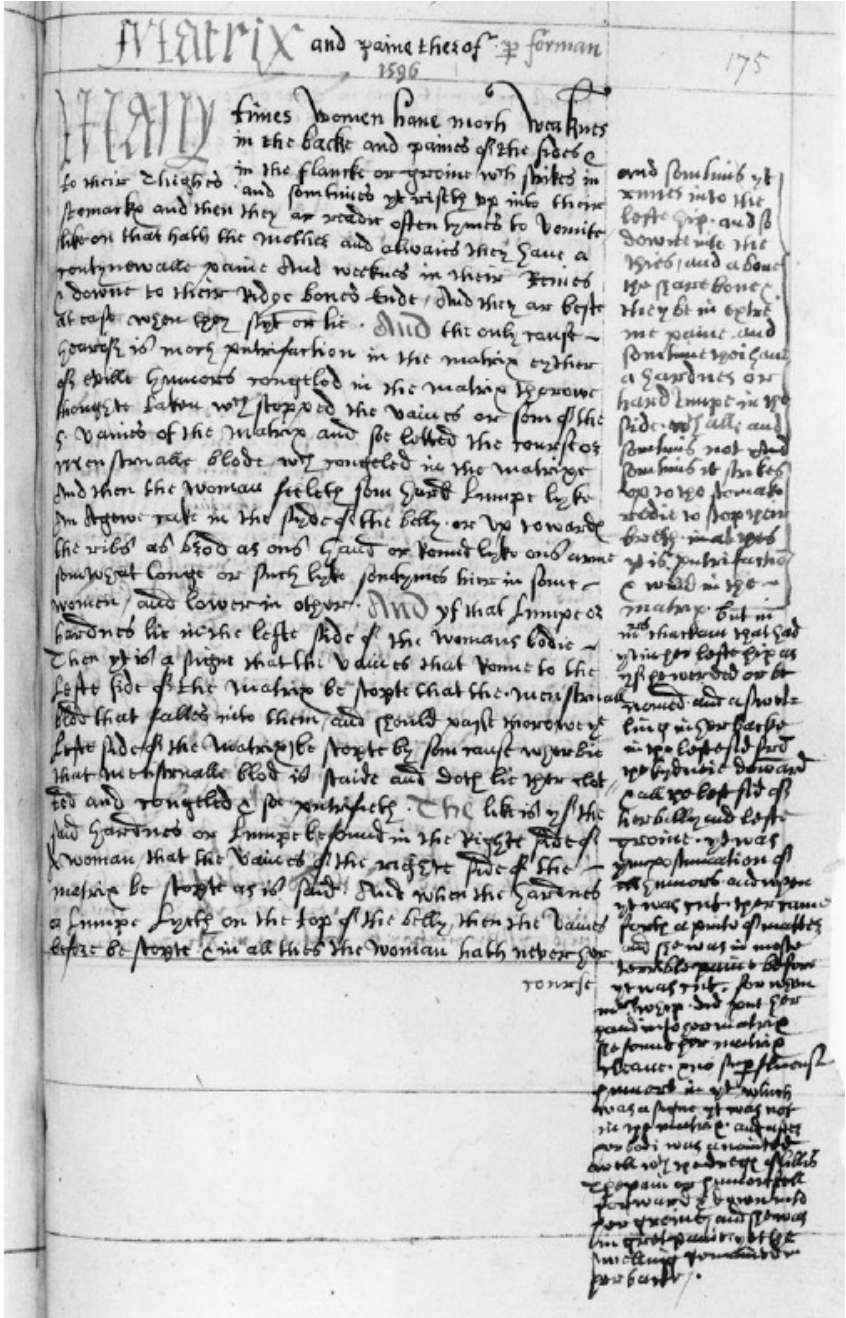 Matrix and paine therof p forman
1596
175
Many times Women haue moch Weaknes
in the backe and paines of the sides &
in the flancke or groine wch strikes in
to their Thighes and somtimes yt riseth vp into their
stomarke and then they ar readie often tymes to vomite
like on that hath the mother and allwaies they haue a
contynewalle paine And weeknes in their Reines
& downe to their Ridge bones Ende, And they ar beste
at ease when they sytt or lie. And the only cause
hearof is moch putrifaction in the matrix eyther
of eville humors congeled in the matrix thorowe
thoughte taken wch stopped the vaines or som of the
5 vaines of the Matrix and soe letted the course of
menstrualle blode wch congeled in the matrixe
And then the woman feeleth som hard Lumpe lyke
An Agewe cake in the syde of the belly or vp towards
the ribs as brod as ons hand or Round lyke ons arme
somwhat longe or such lyke somtymes hier in some
women, and lower in other. And yf that Lumpe or
hardnes lie in the lefte side of the womans bodie
Then yt is a signe that the vaines that Ronne to the
Lefte side of the Matrix be stopte that the menstruall
blod that falles into them, and should passe thorowe ye
Lefte side of the Matrix be stopte by som cause wherbie
that menstrualle blod is staide and doth lie ther clot
ted and congeled & soe putrifieth. The like is yf the
said hardnes or Lumpe be found in the Righte side of
woman, that the vaines of the righte side of the
matrix be stopte as is said. And when the hardnes
or Lumpe Lyeth on the top of the belly, then the vaines
before be stopte & in all thes the woman hath never her
course
and somtims yt
runes into the
lefte hip. and so
downe into the
thies, and aboue
the share bone &
they be in extre
me paine. and
somtime thei haue
a hardnes or
hard Lumpe in the
side. wth alle and
somtims not And
somtims it strikes
vp to the stomak
redie to stop their
breth
yt is putrifaction
& wind in the
matrix. but in
that had
yt in her lefte hip as
yf she wer ded or be
nomed. and a swel
ling in her backe
in the lefte sid from
the kydneie downward
& all the left sid of
her belly and lefte
groine. yt was
ympostumation of
humors and vpon
yt was cut. ther came
forth a pinte of matter
and she was in moste
terrible paine before
yt was cut. for when
whip. did put her
hand into her matrix
she found her matrix
cleane. & no superfluouse
humors in yt which
was a signe yt was not
in the matrix. and after
her bodi was anointed
well wth
the pain or humor fell
forward & down into
her groine, and she was
in gret paine yet the
swelling remained in
her backe.